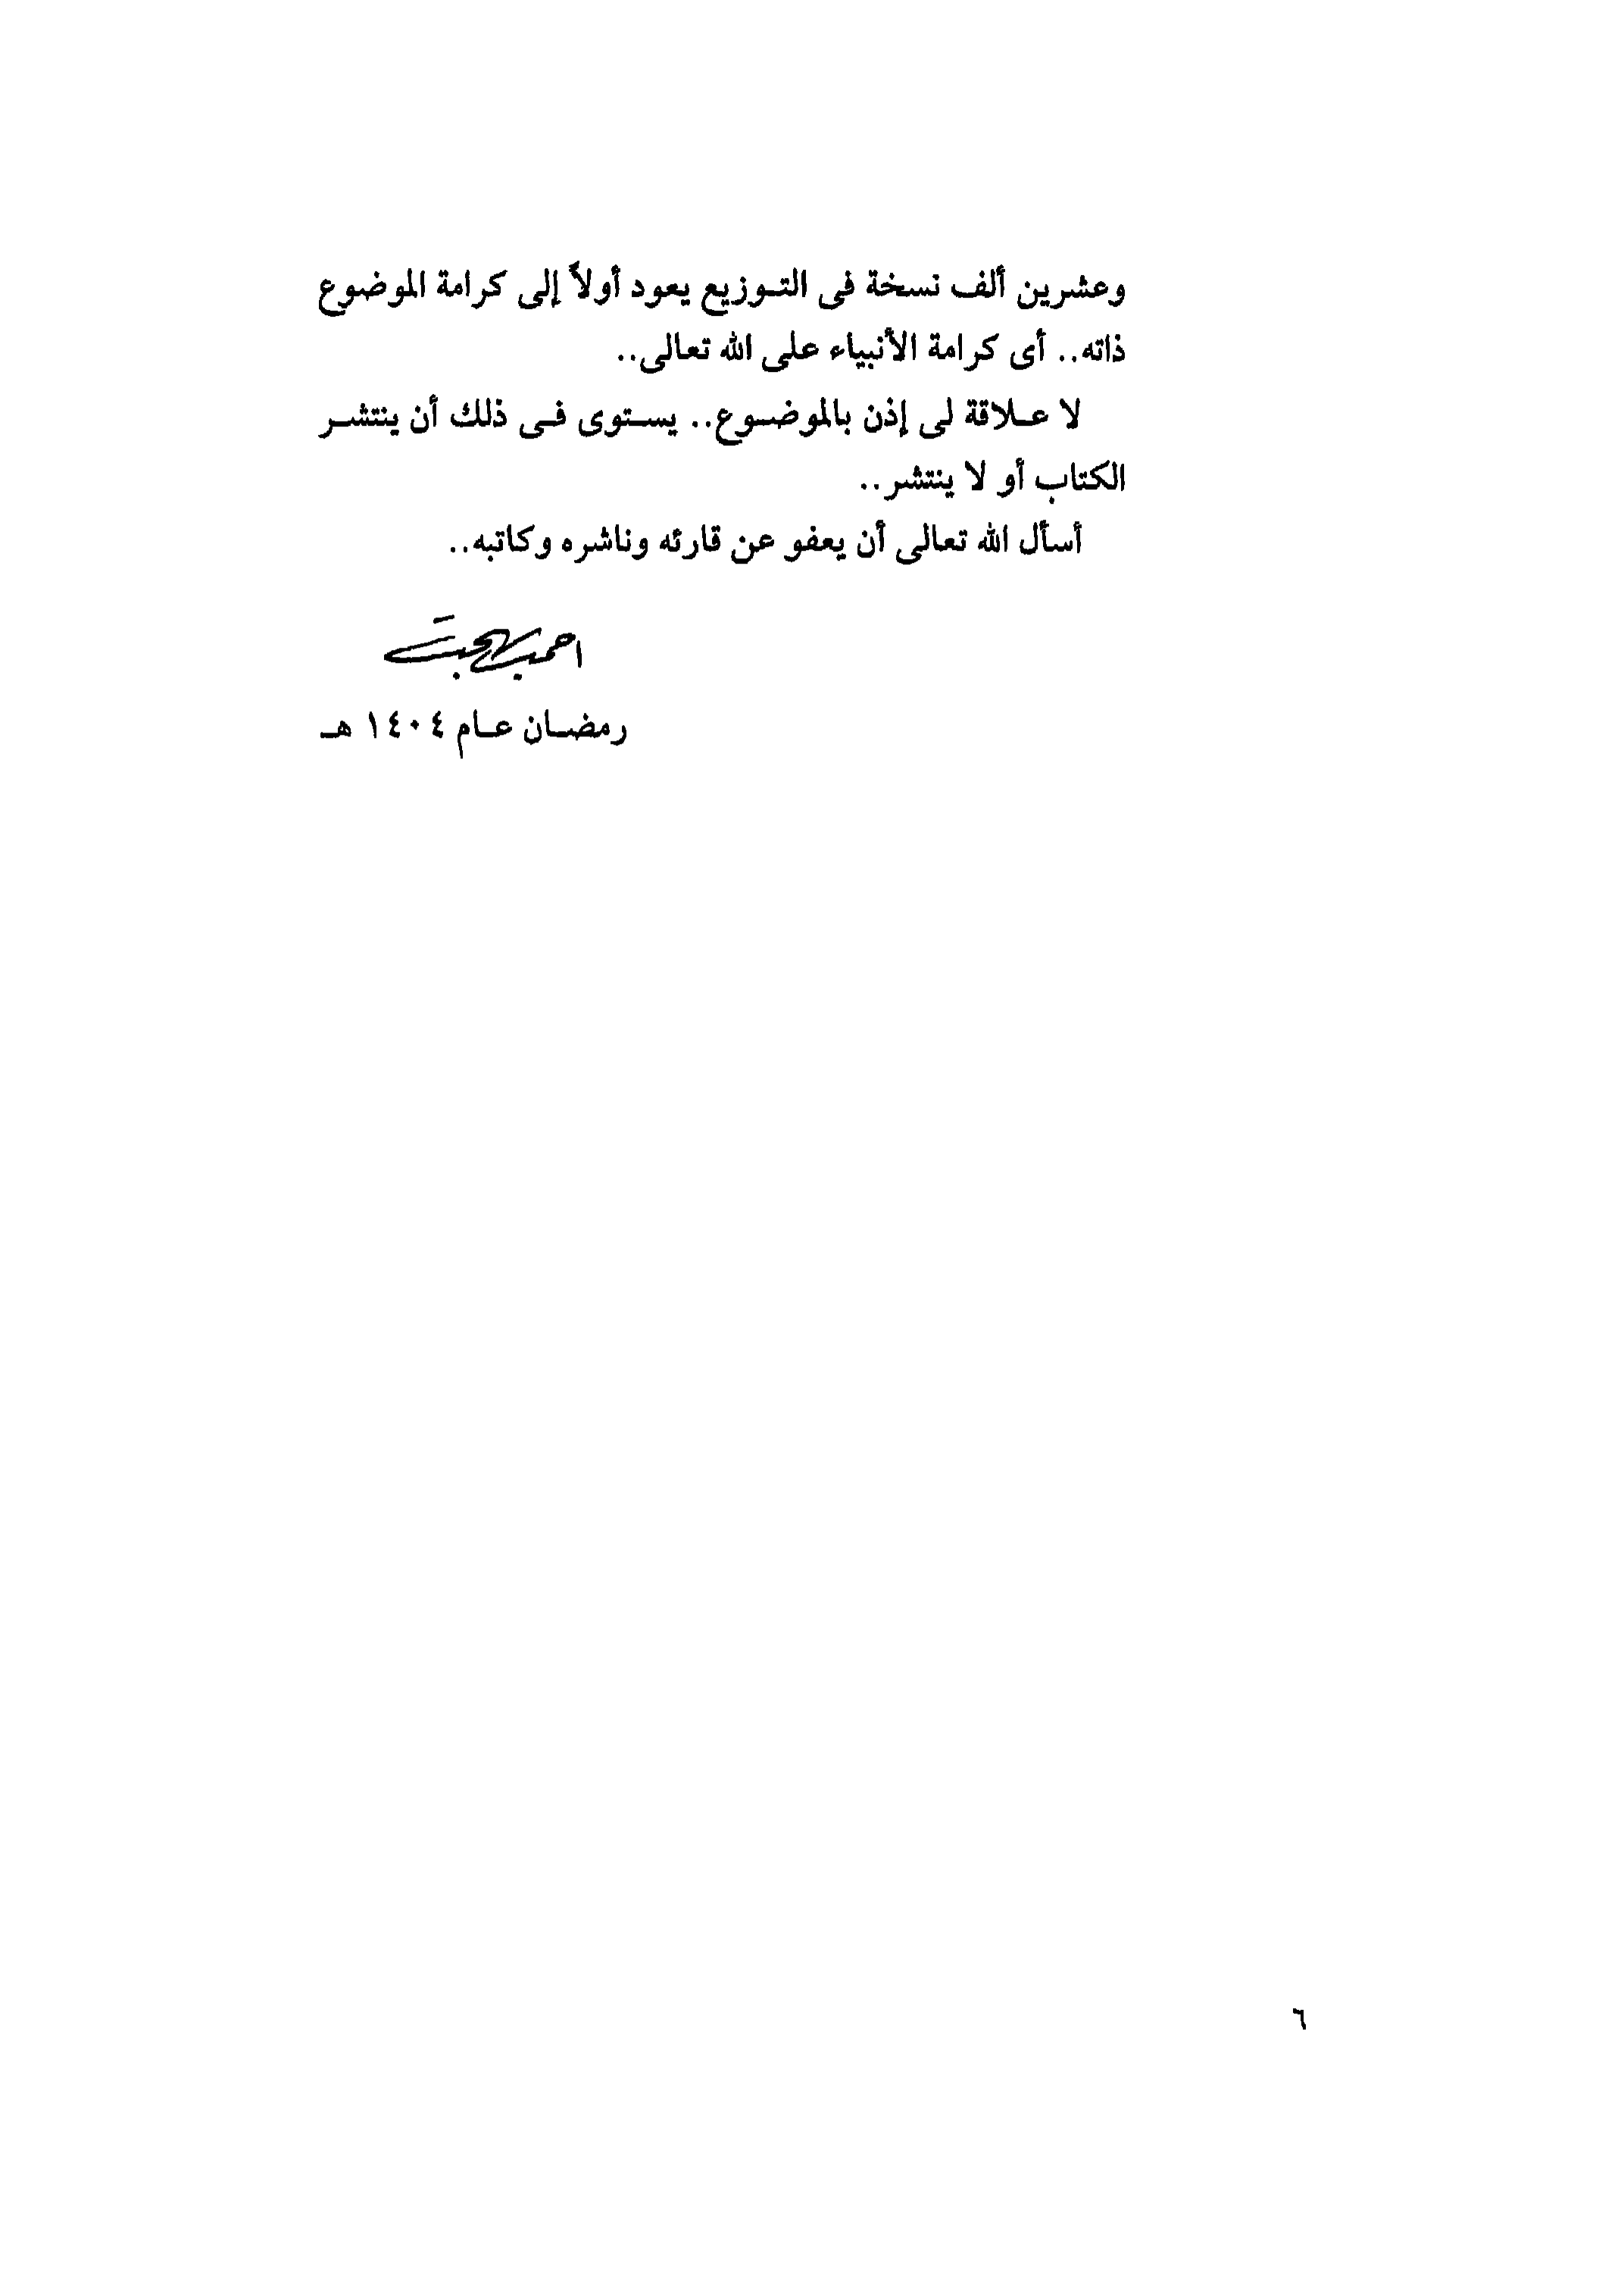 وعشرين ألف نسخة فى التوزيع يعود أولاً إلى كرامة الموضوع
ذاته.. أى كرامة الأنبياء على الله تعالى..
لا علاقة لى إذن بالموضوع.. يستوى فى ذلك أن ينتشر
الكتاب أو لا ينتشر..
أسأل الله تعالى أن يعفو عن قارئه وناشره وكاتبه..
احمد بهجت
رمضان عام ١٤٠٤ هـ
٦